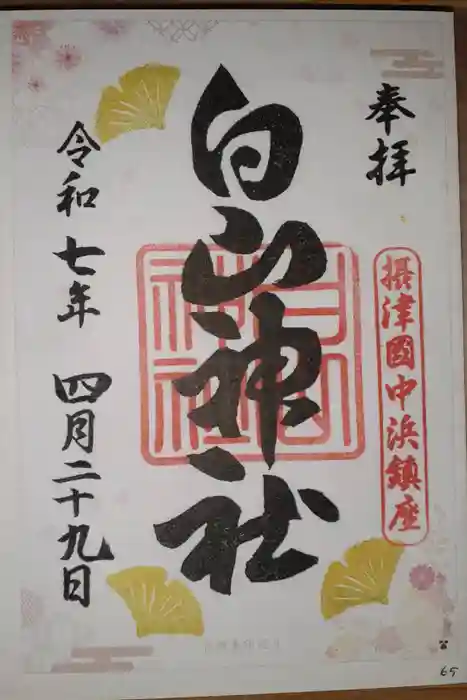 奉拝
摂津國中浜鎮座
白山神社
白山神社
令和七年 四月二十九日
65